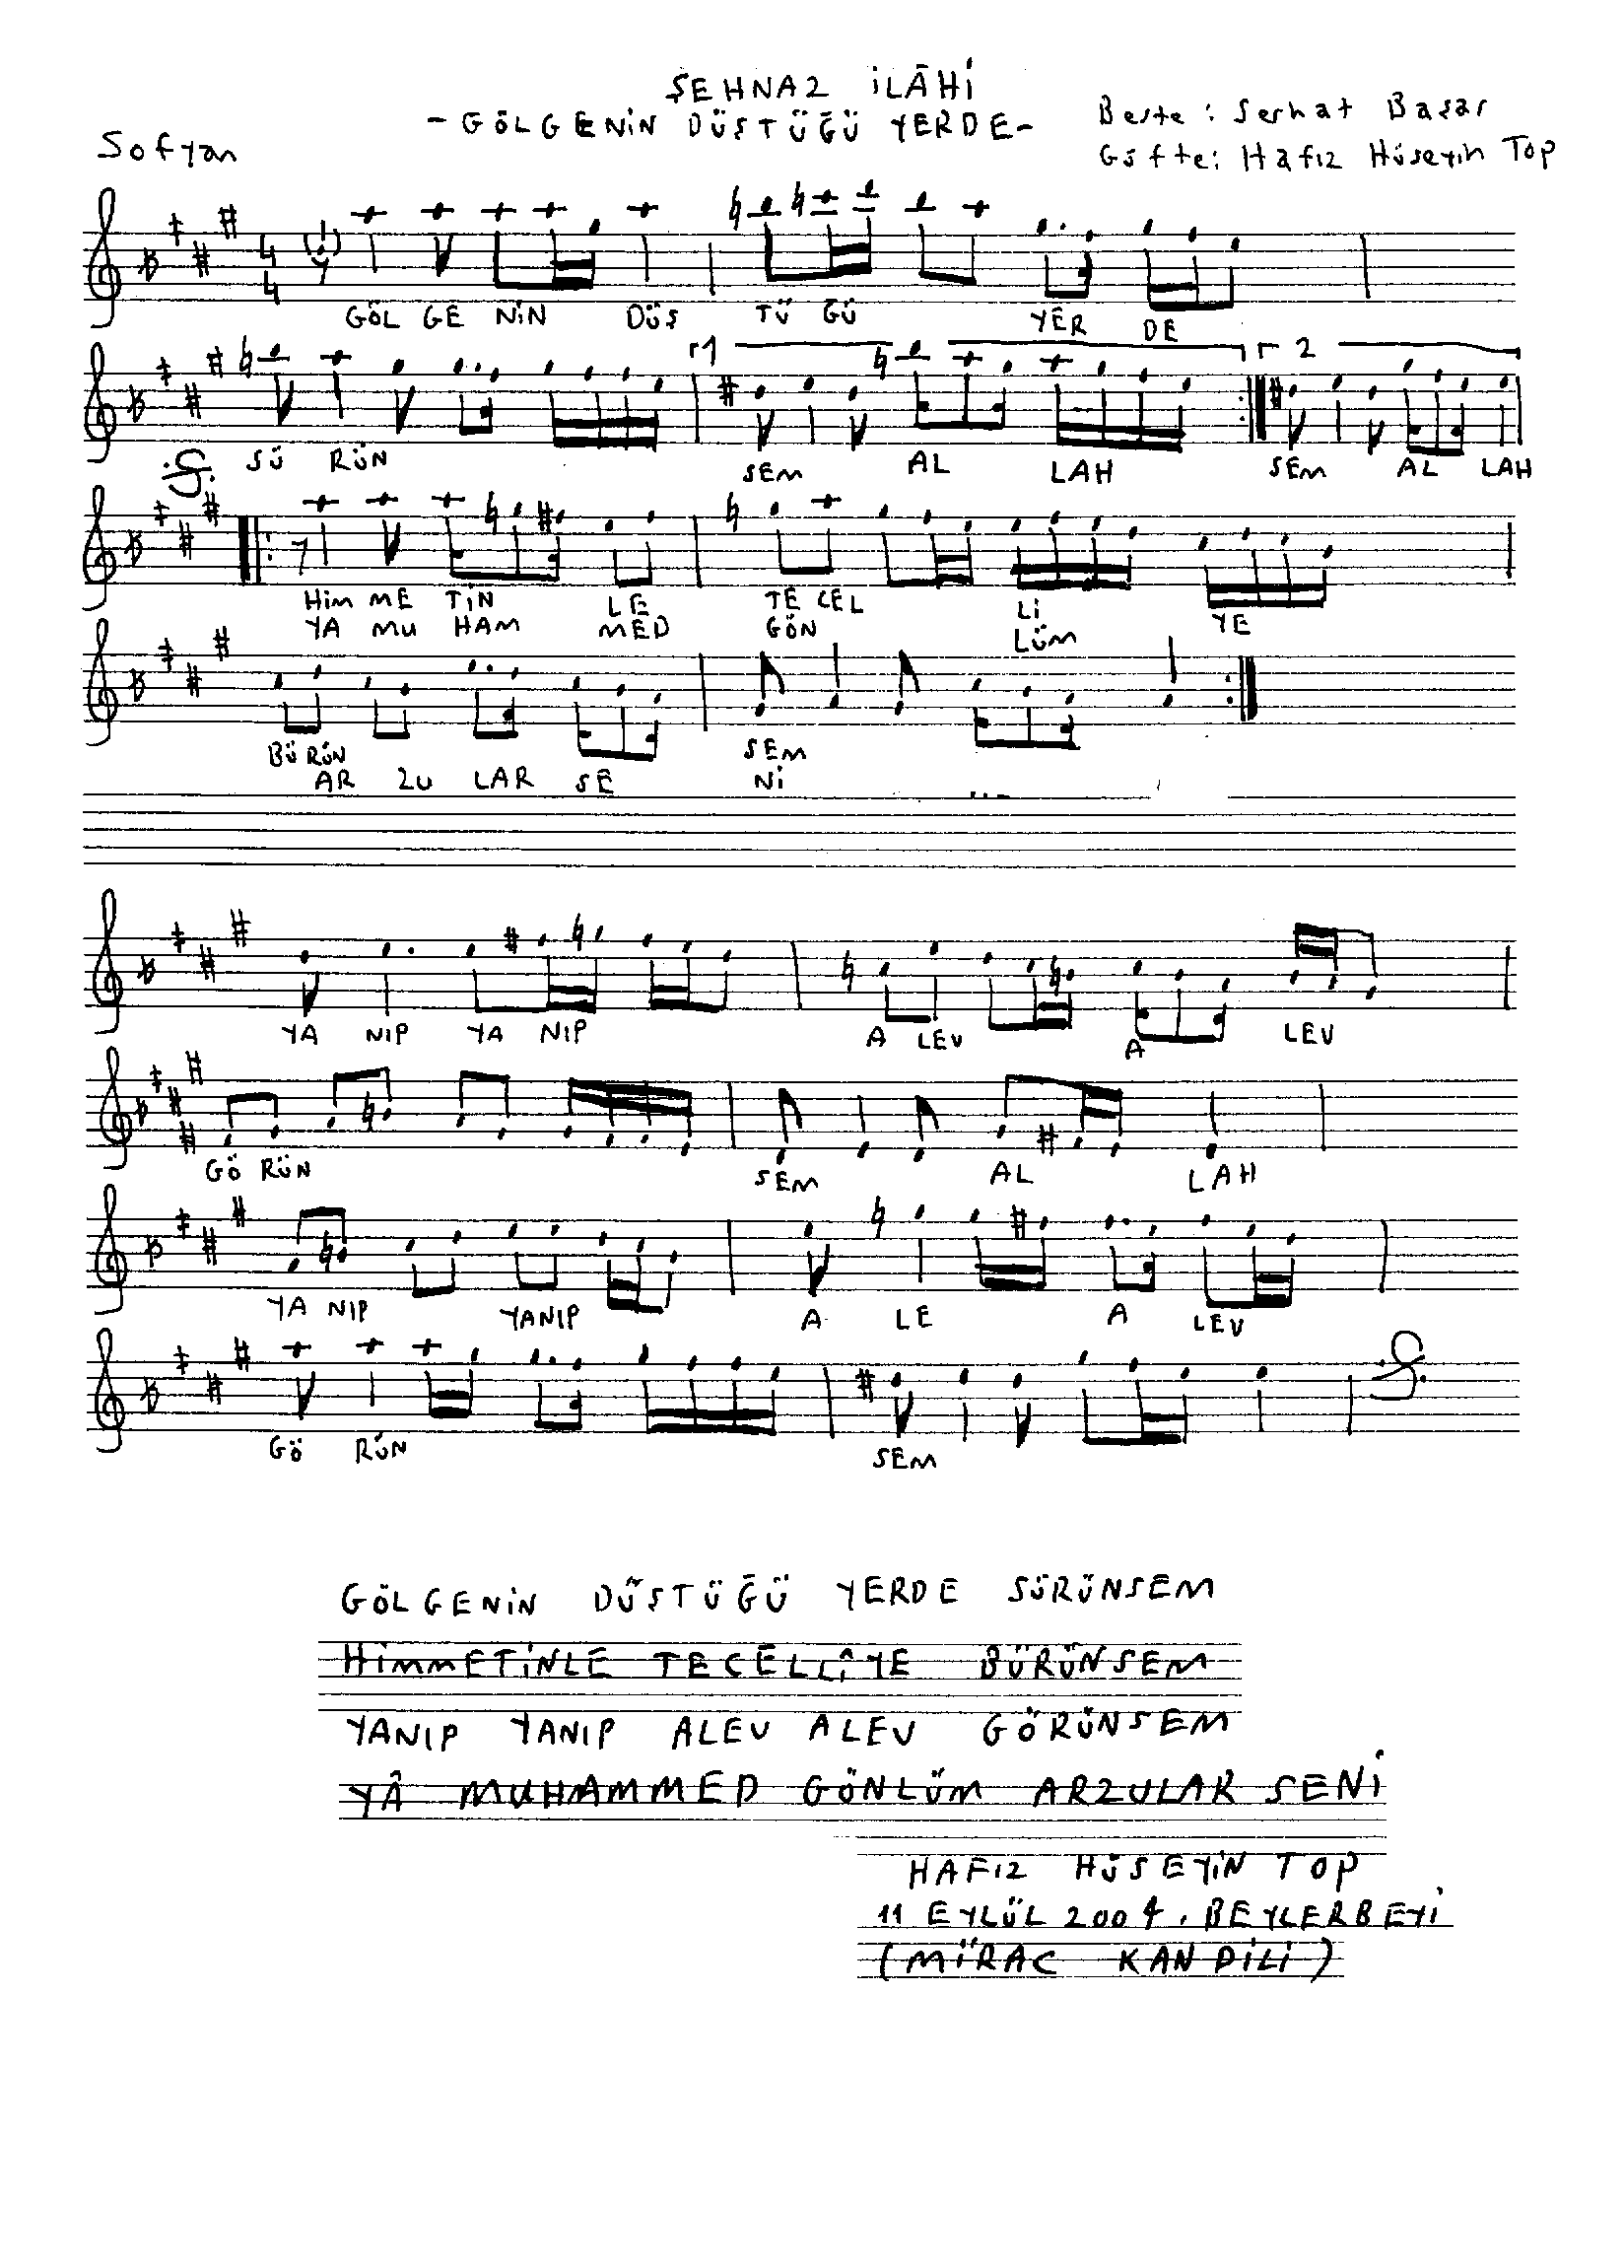 ŞEHNAZ İLÂHİ
- GÖLGENİN DÜŞTÜĞÜ YERDE -
Beste : Serhat Başar
Sofyan
Güfte : Hafız Hüseyin Top
4 4
GÖL GE NİN DÜŞ TÜ ĞÜ YER DE
1 2
SÜ RÜN SEM AL LAH SEM AL LAH
HİM ME TİN LE TE CEL Lİ YE
YA MU HAM MED GÖN LÜM
BÜ RÜN SEM
AR ZU LAR SE Nİ
YA NIP YA NIP A LEV A LEV
GÖ RÜN SEM AL LAH
YA NIP YANIP A LE A LEV
GÖ RÜN SEM
GÖLGENİN DÜŞTÜĞÜ YERDE SÜRÜNSEM
HİMMETİNLE TECELLÎYE BÜRÜNSEM
YANIP YANIP ALEV ALEV GÖRÜNSEM
YÂ MUHAMMED GÖNLÜM ARZULAR SENİ
HAFIZ HÜSEYİN TOP
11 EYLÜL 2004, BEYLERBEYİ
(MİRAC KANDİLİ)